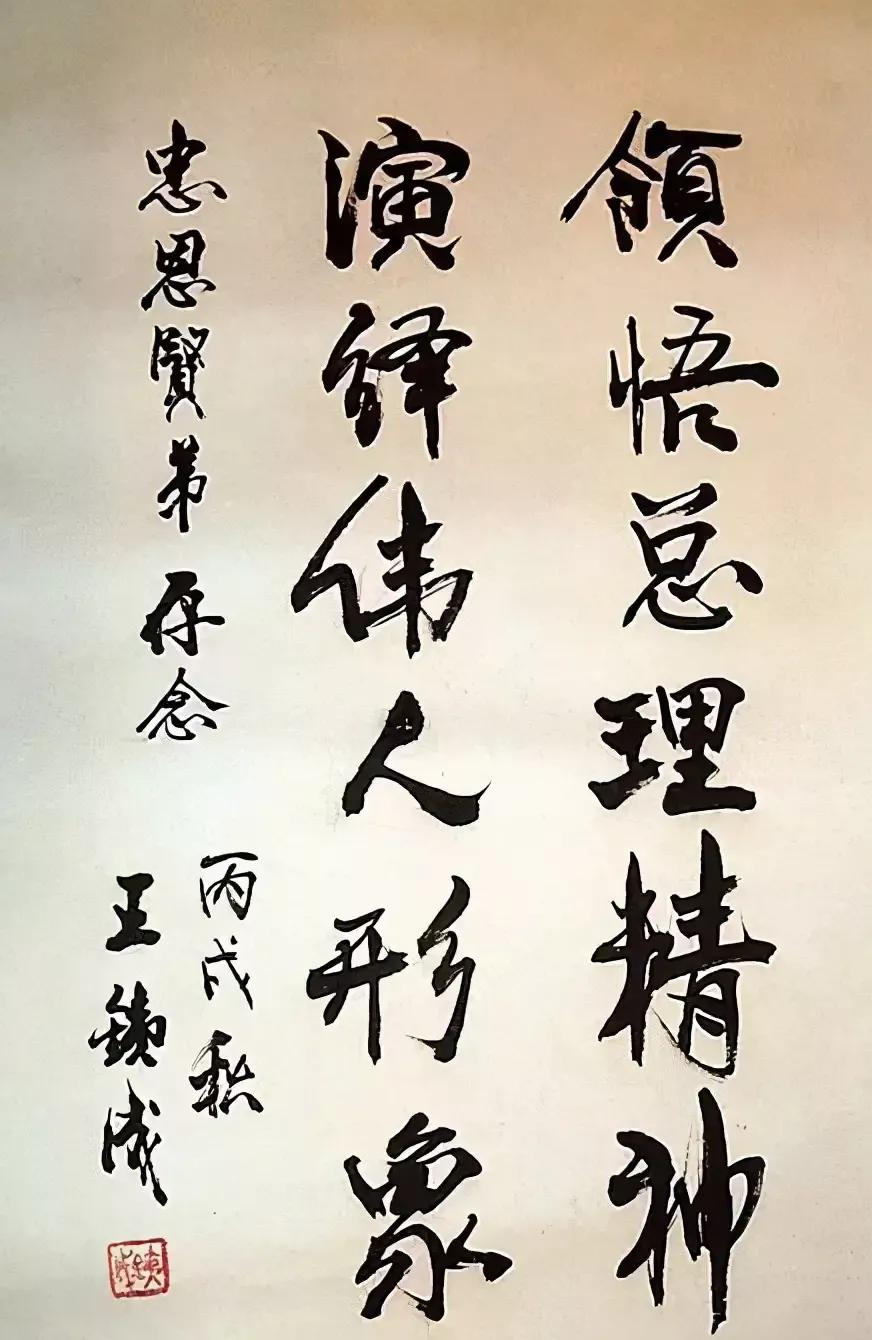 領悟总理精神
演绎伟人形象
忠恩賢弟 存念
丙戌秋
王鐵成